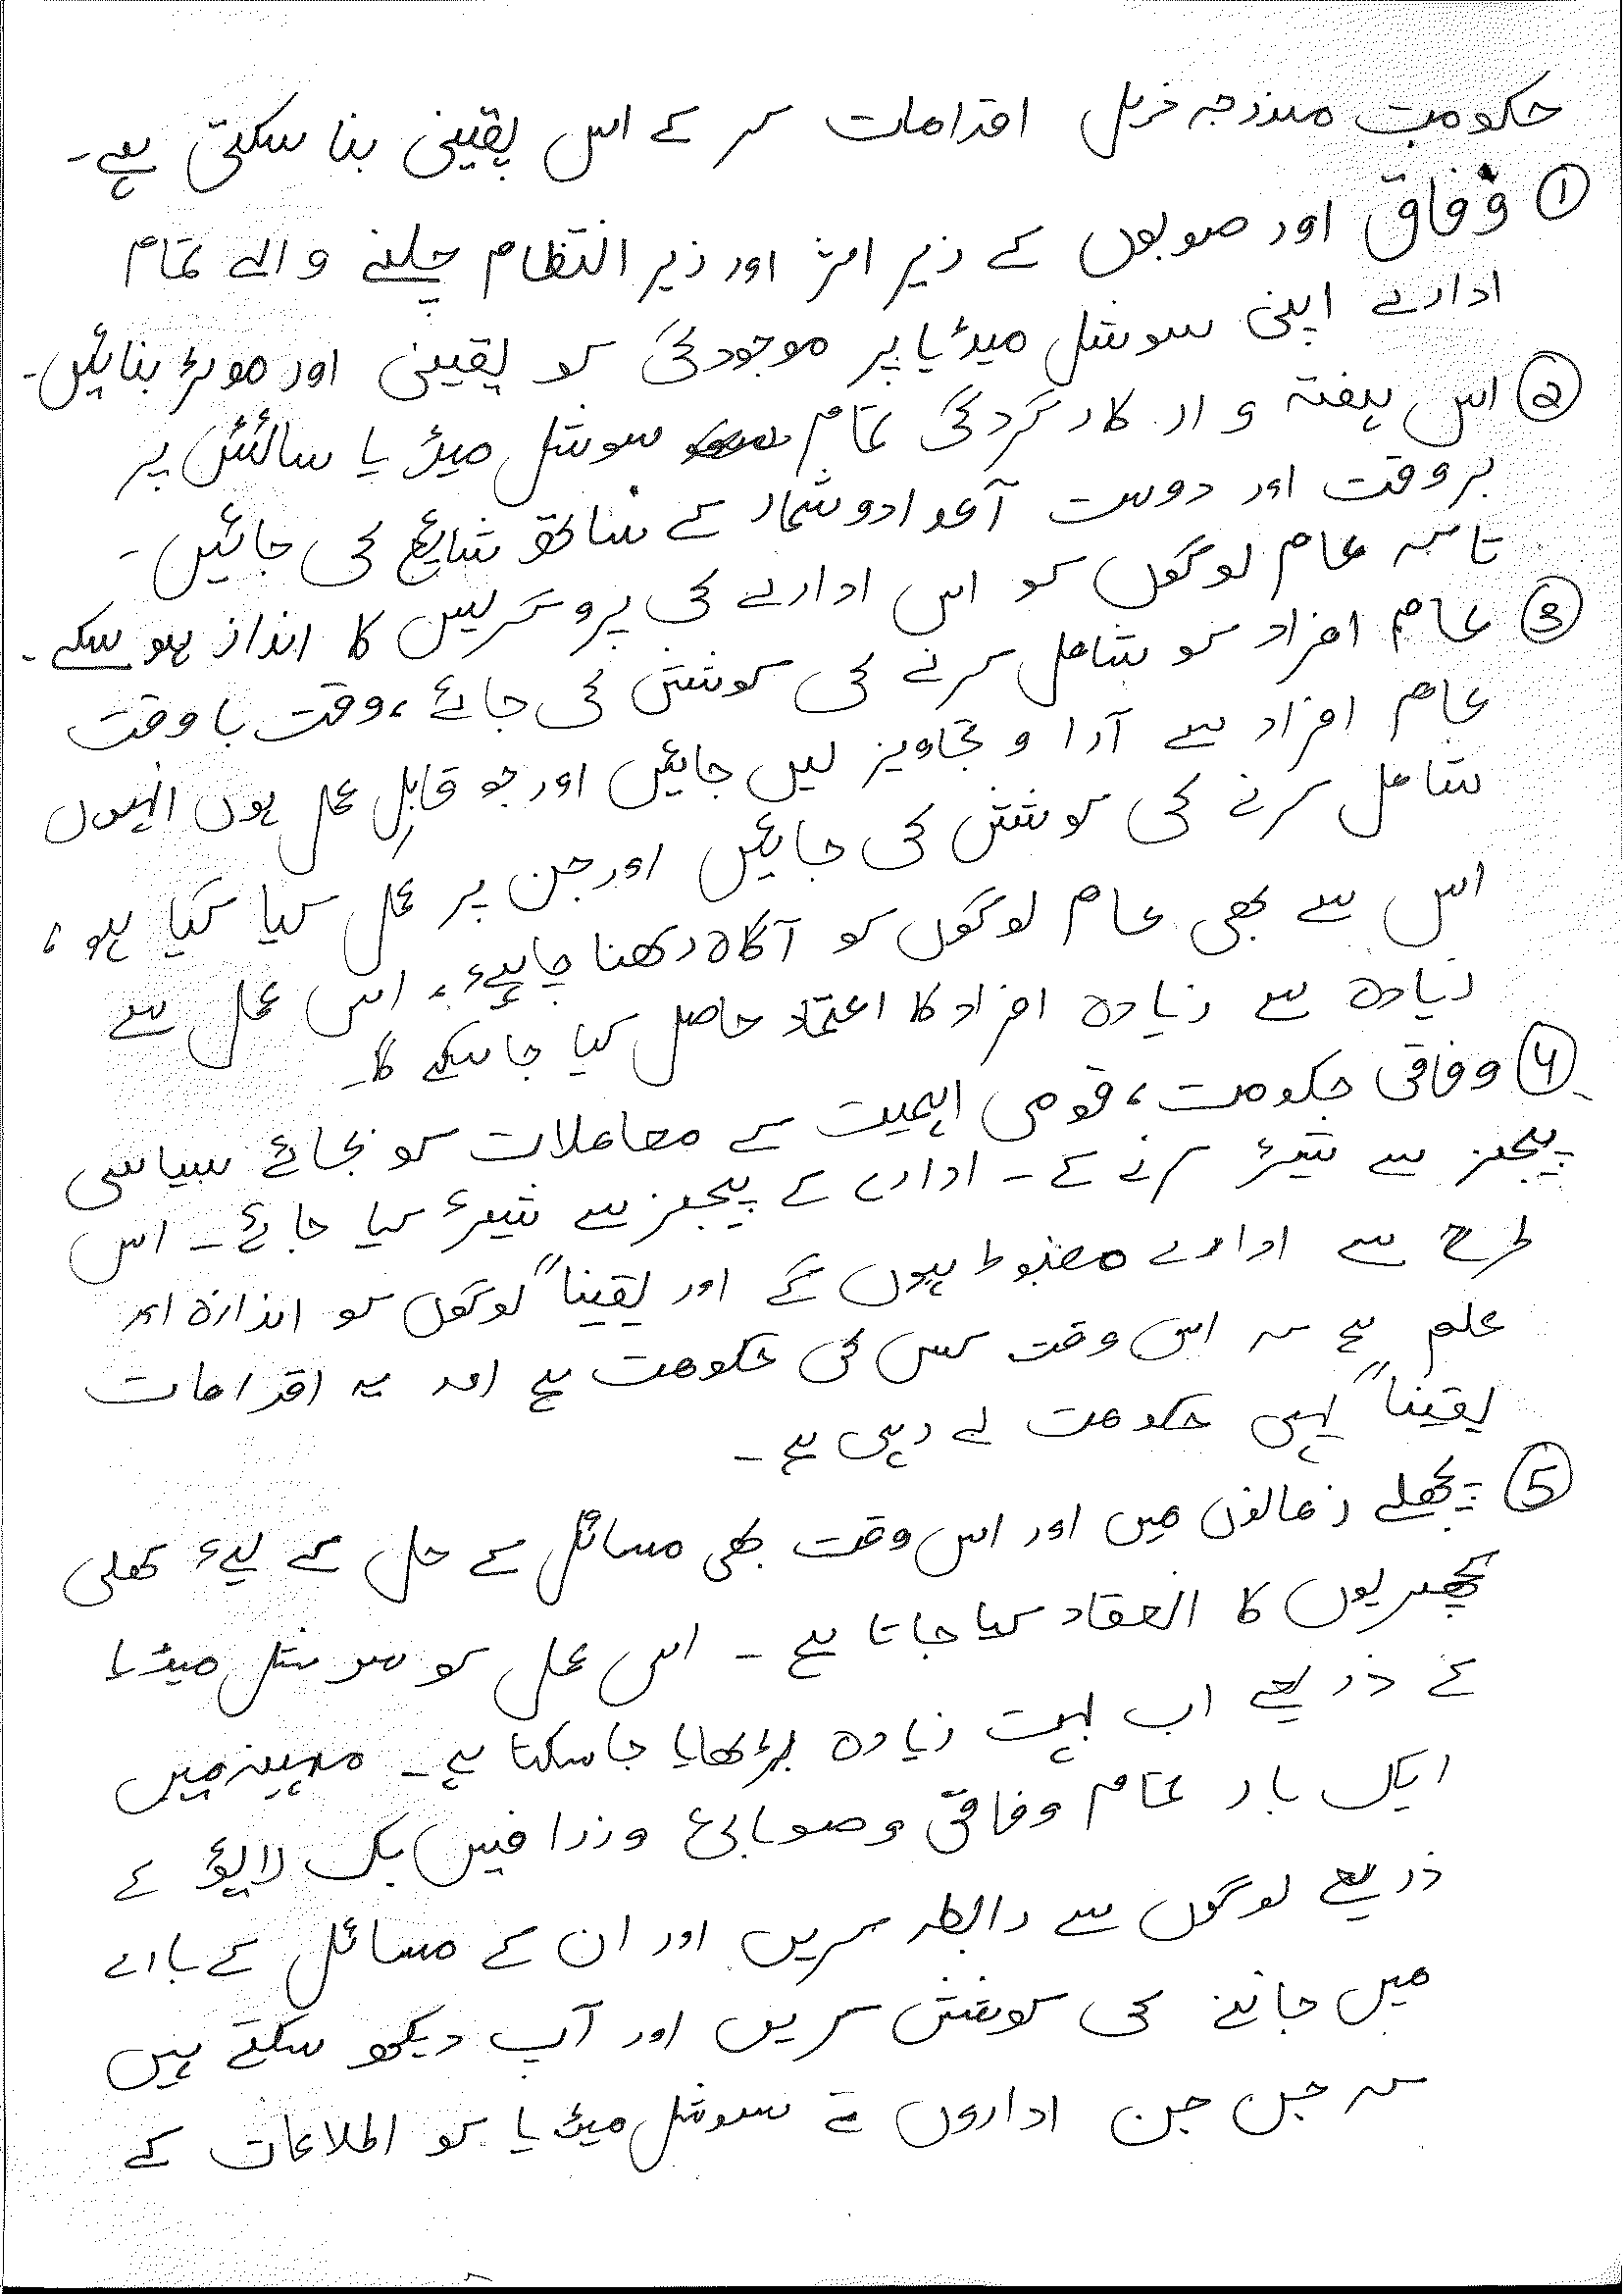 حکومت مندرجہ ذیل اقدامات کر کے اس یقینی بنا سکتی ہے۔
① وفاق اور صوبوں کے زیر اثر اور زیر انتظام چلنے والے تمام
ادارے اپنی سوشل میڈیا پر موجودگی کو یقینی اور موثر بنائیں۔
② اس ہفتہ وار کارکردگی تمام سوشل میڈیا سائٹس پر
بروقت اور درست آعدادوشمار کے ساتھ شایع کی جائیں۔
تاکہ عام لوگوں کو اس ادارے کی پروگریس کا انداز ہو سکے۔
③ عام افراد کو شامل کرنے کی کوشش کی جائے، وقت با وقت
عام افراد سے آرا و تجاویز لیں جائیں اور جو قابلِ عمل ہوں انہوں
شامل کرنے کی کوشش کی جائیں اور جن پر عمل کیا گیا ہو،
اس سے بھی عام لوگوں کو آگاہ رکھنا چاہیۓ، اس عمل سے
زیادہ سے زیادہ افراد کا اعتماد حاصل کیا جا سکے گا۔
④ وفاقی حکومت، قومی اہمیت کے معاملات کو بجائے سیاسی
پیجز سے شیئر کرنے کے۔ ادارے کے پیجز سے شیئر کیا جائے۔ اس
طرح سے ادارے مضبوط ہوں گے اور یقیناً لوگوں کو اندازہ اور
علم ہے کہ اس وقت کس کی حکومت ہے اور یہ اقدامات
یقیناً یہی حکومت لے رہی ہے۔
⑤ پچھلے زمانوں میں اور اس وقت بھی مسائل کے حل کے لیۓ کھلی
کچھریوں کا انعقاد کیا جاتا ہے۔ اس عمل کو سوشل میڈیا
کے ذریعے اب بہت زیادہ بڑھایا جا سکتا ہے۔ مہینہ میں
ایک بار تمام وفاقی و صوبائی وزرا فیس بک لائیو کے
ذریعے لوگوں سے رابطہ کریں اور ان کے مسائل کے بارے
میں جاننے کی کوشش کریں اور آپ دیکھ سکتے ہیں
کہ جن جن اداروں نے سوشل میڈیا کو اطلاعات کے